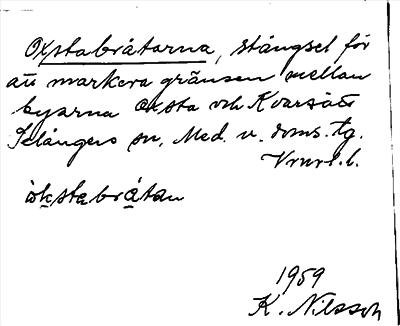 Oxstabråtarna, stängsel för
att markera gränsen mellan
byarna Oxsta och Kvarsätt
Selångers sn, Med. v. doms. tg.
ὰkstabrátan
1959
K. Nilsson